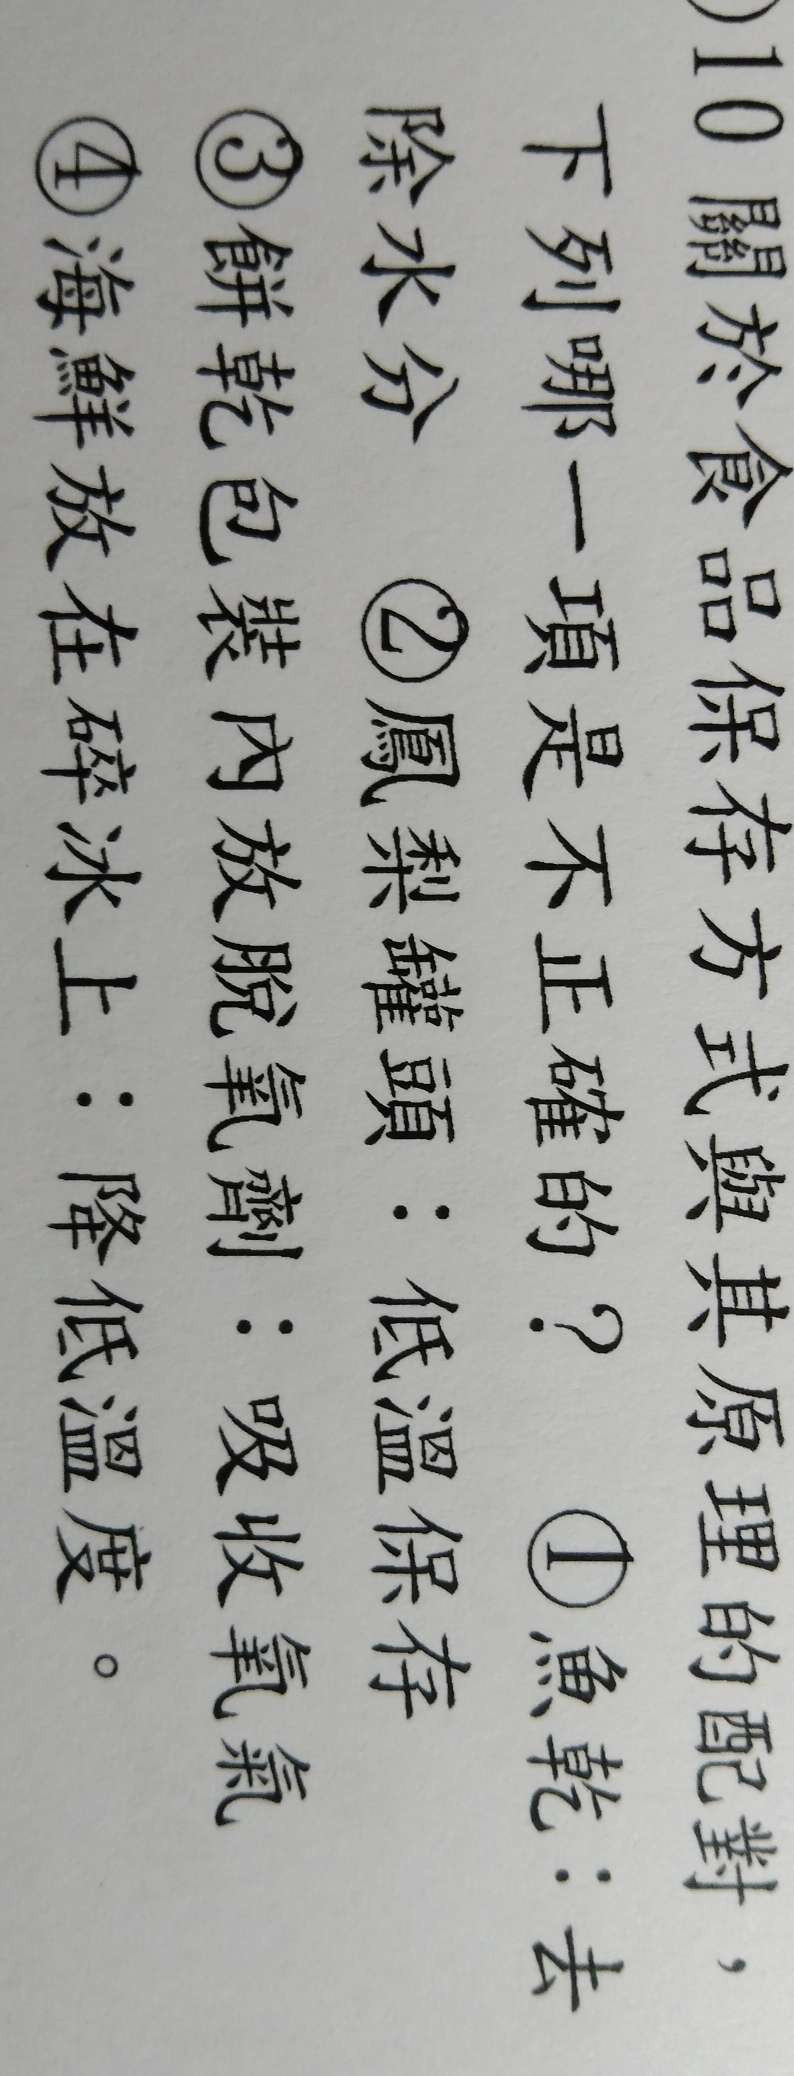 )10 關於食品保存方式與其原理的配對，
下列哪一項是不正確的？ ①魚乾：去
除水分 ②鳳梨罐頭：低溫保存
③餅乾包裝內放脫氧劑：吸收氧氣
④海鮮放在碎冰上：降低溫度。